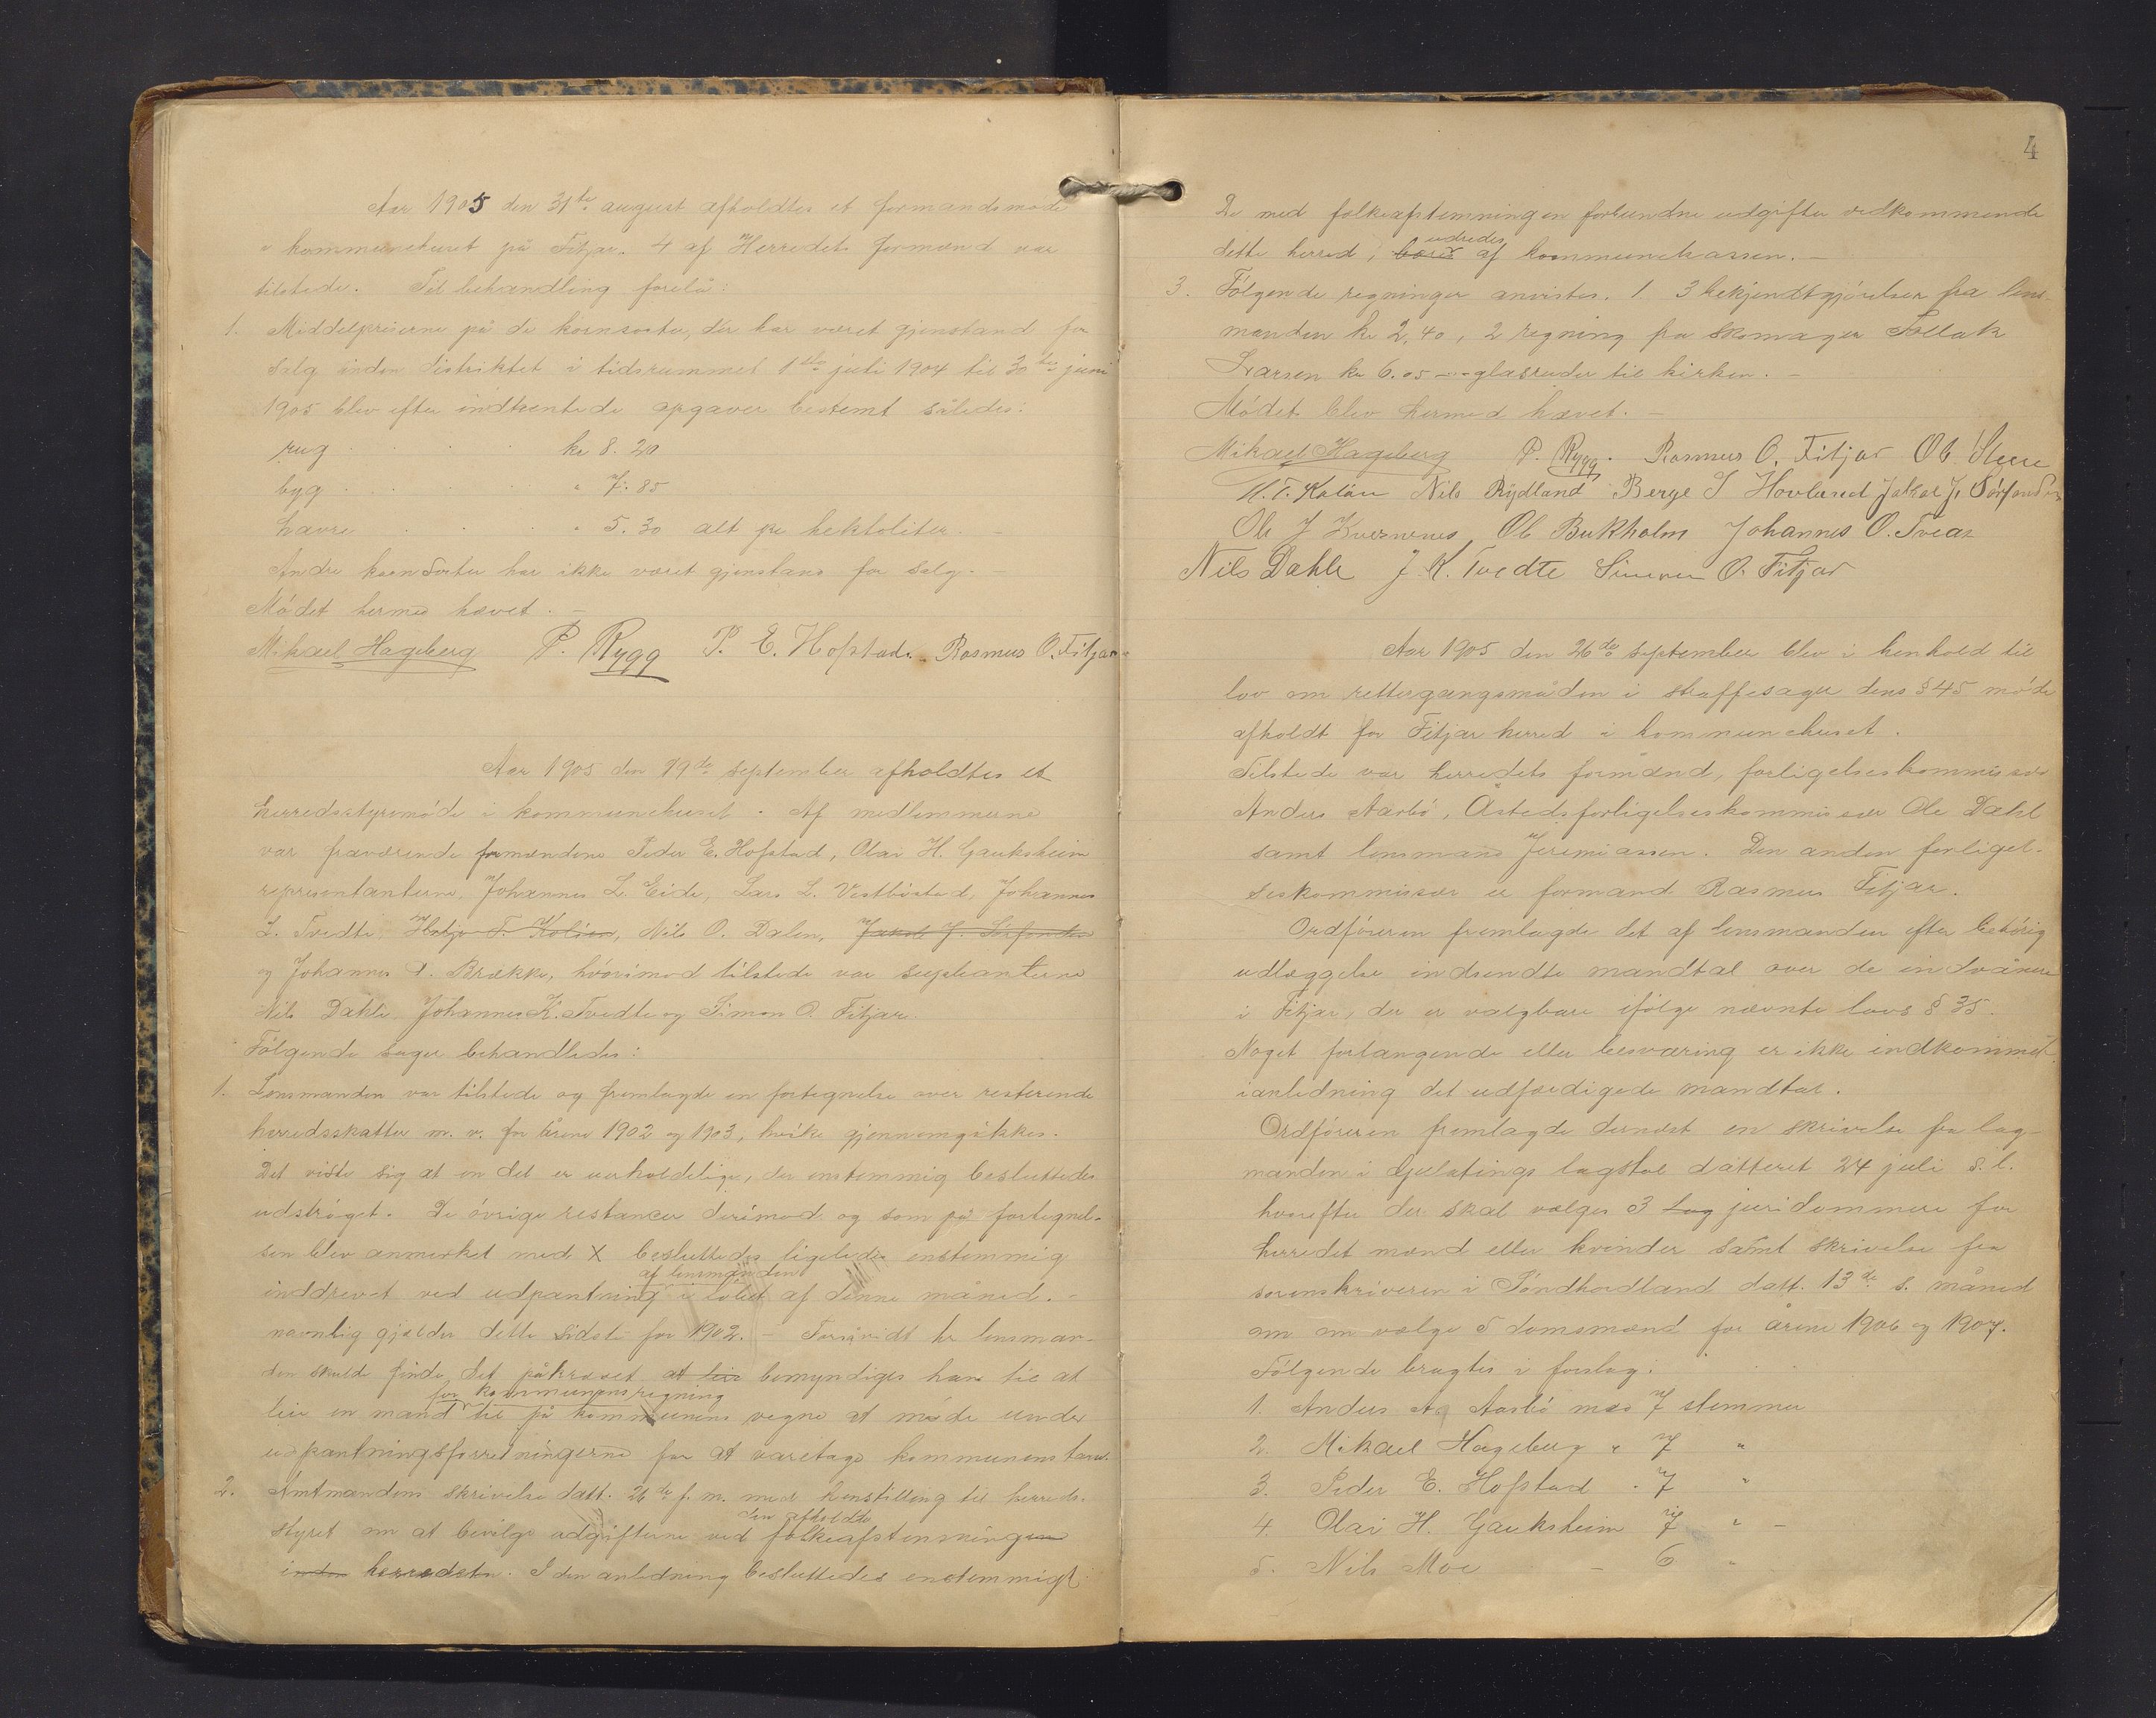 Aar 1905 den 31te august afholdtes et formandsmøde
i kommunehuset på Fitjar. 4 af Herredets formænd var
tilstede. Til behandling forelå:
1. Middelpriserne på de kornsorter, der har været gjenstand for
salg inden distriktet i tidsrummet 1ste juli 1904 til 30te juni
1905 blev efter indhentede opgaver bestemt således:
rug kr 8.20
byg " 7.85
havre " 5.30 alt pr hektoliter. -
Andre kornsorter har ikke været gjenstand for salg. -
Mødet hermed hævet. -
Mikael Hageberg P. Rygg P. E. Hofstad. Rasmus O. Fitjar
Aar 1905 den 19de september afholdtes et
herredsstyremøde i kommunehuset. Af medlemmerne
var fraværende formændene Peder E. Hofstad, Olai H. Gauksheim
repræsentanterne Johannes L. Eide, Lars L. Vestbøstad, Johannes
L. Tvedte, Helje T. Koløen, Nils O. Dalen, Jakob J. Sørfonden
og Johannes P. Brække, hvorimod tilstede var suppleanterne
Nils Dahle, Johannes K. Tvedte og Simon O. Fitjar.
Følgende sager behandledes:
1. Lensmanden var tilstede og fremlagde en fortegnelse over resterende
herredsskatter m. v. for årene 1902 og 1903, hvilke gjennemgikkes.
Det viste sig at en del er uerholdelige, der enstemmig besluttedes
udstrøget. De øvrige restancer derimod og som på fortegnel-
sen blev anmerket med X besluttedes ligeledes enstemmig
af lensmanden
inddrevet ved udpantning i løbet af denne måned. -
navnlig gjælder dette sidste for 1902. - Forsåvidt hr lensman-
den skulde finde det påkrævet at leie bemyndiges han til at
for kommunens regning
leie en mand til på kommunens vegne at møde under
udpantningsforretningerne for at varetage kommunens tarv.
2. Amtmandens skrivelse datt. 26de f. m. med henstilling til herreds-
den afholdte
styret om at bevilge udgifterne ved folkeafstemningen
inden herredet. I den anledning besluttedes enstemmigt:
4
De med folkeafstemningen forbundne udgifter vedkommende
udredes
dette herred, af kommunekassen. -
3. Følgende regninger anvistes. 1. 3 bekjendtgjørelser fra lens-
manden kr 2.40, 2 regning fra skomager Tollak
Larsen kr 6.05 glasruder til kirken. -
Mødet blev hermed hævet. -
Mikael Hageberg P. Rygg. Rasmus O. Fitjar Ob. Steen
H. T. Koløen Nils Rydland Berge S Hovland Jakob J. Sørfonden
Ole J Kvernenes Ob Bukholm Johannes O. Tveat
Nils Dahle J. K. Tvedte Simon O. Fitjar
Aar 1905 den 26de september blev i henhold til
lov om rettergangsmåden i straffesager dens § 45 møde
afholdt for Fitjar herred i kommunehuset.
Tilstede var herredets formænd, forligelseskommissær
Anders Aarbø, Åstedsforligelseskommissær Ole Dahl
samt lensmand Jeremiassen. Den anden forligel-
seskommissær er formand Rasmus Fitjar.
Ordføreren fremlagde det af lensmanden efter behørig
udlæggelse indsendte mandtal over de indvånere
i Fitjar, der er valgbare ifølge nævnte lovs § 35.
Noget forlangende eller besværing er ikke indkommet
ianledning det udfærdigede mandtal.
Ordføreren fremlagde dernæst en skrivelse fra lag-
manden i Gulatings lagstol datteret 24 juli s. l.
hvorefter der skal vælges 3 Lag juridommere for
herredet mænd eller kvinder samt skrivelse fra
sorenskriveren i Søndhordland datt. 13de s. måned
om om vælge 5 domsmænd for årene 1906 og 1907.
Følgende bragtes i forslag:
1. Anders A. Aarbø med 7 stemmer
2. Mikael Hageberg " 7 "
3. Peder E. Hofstad " 7 "
4. Olai H. Gauksheim 7 " -
5. Nils Moe - 6 "